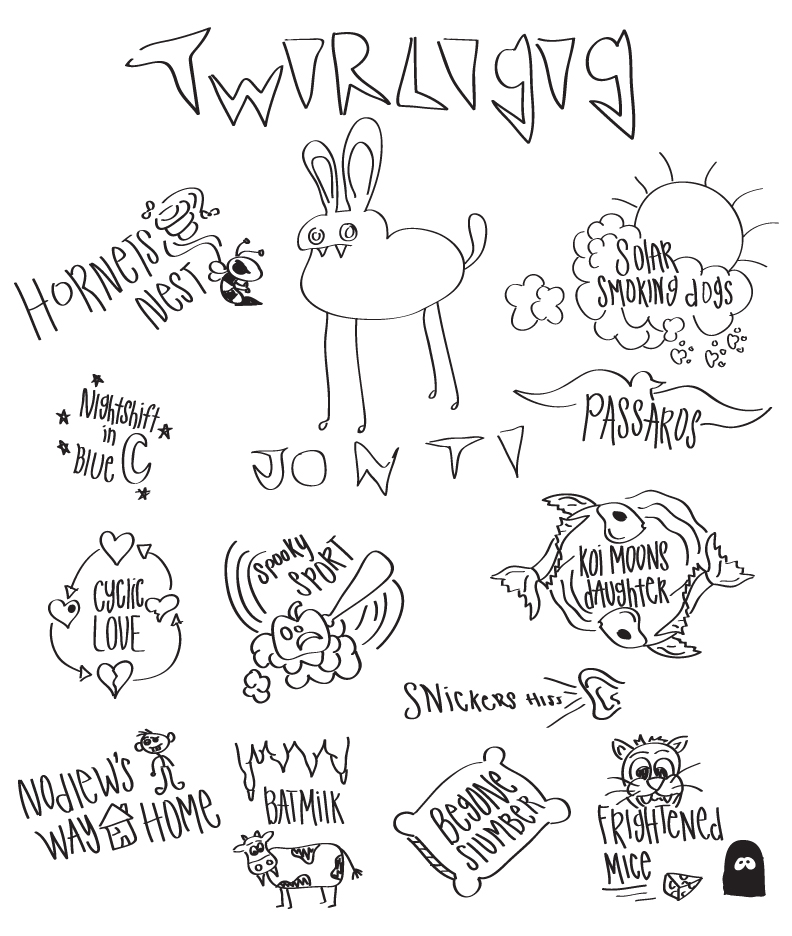 TWIRLIGIG
HORNETS
NEST
SOLAR
SMOKING dOgS
Nightshift
in
BLUE C
PASSAROS
JONTI
CYCLIC
LOVE
SPOOKY
SPORT
KOI MOONS
dAUGHTER
SNICKERS HISS
NODLEW'S
WAY HOME
BATMILK
BEGONE
SLUMBER
FRIGHTENEd
MICE